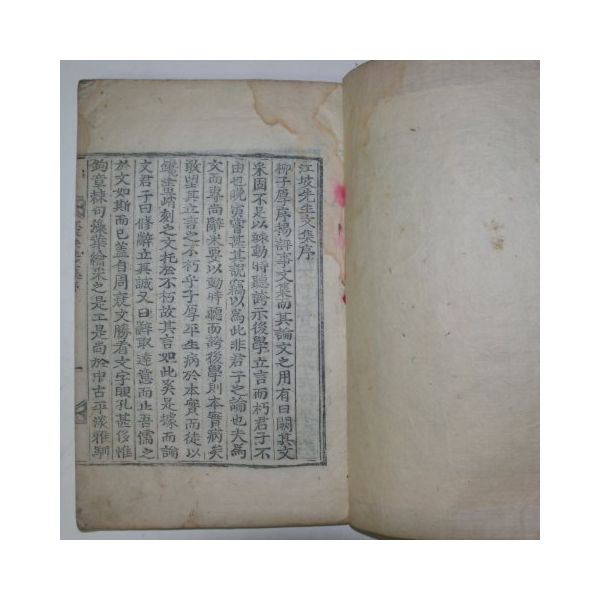 江坡先生文集序
柳子厚序楊評事文集而其論文之用有曰闕其文
采固不足以竦動時聽誇示後學立言而朽君子不
由也晩嘗甚其說竊以爲此非君子之論也夫爲
文而專尚辭采要以動時聽而誇後學則本實病矣
敢望其立言之不朽乎子厚平生病於本實而徒以
鑱畫琦刻之文托於不朽故其言如此矣是據而論
文君子曰修辭立其誠又曰辭取達意而止吾儒之
於文如斯而已蓋自周衰文勝看文字眼孔甚侈惟
鉤章棘句藻華繪采之是工是尚於中古平淡雅馴